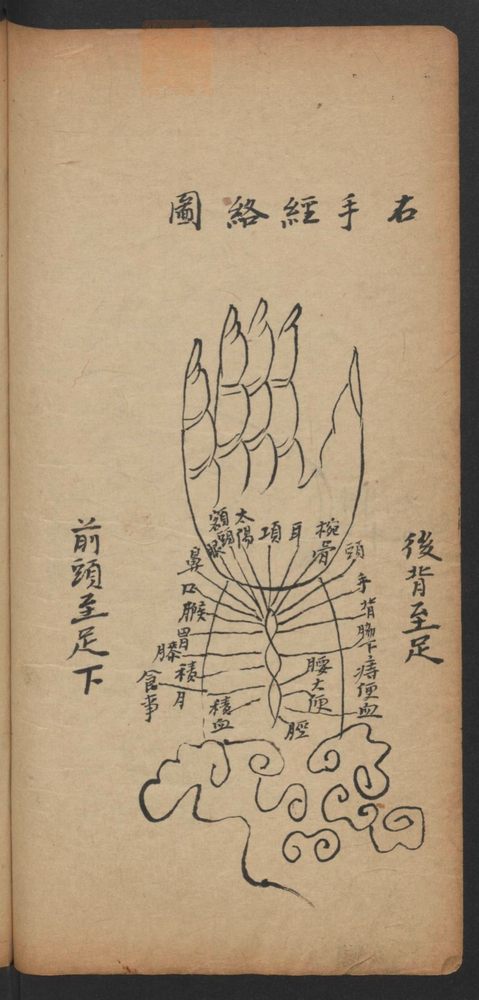 右手經絡圖
後背至足
頭
椀骨
耳
項
太陽
額頭
眼
鼻
口
喉
胃
積
月
食事
積血
手
背
脇下
痔便血
腰
大便
脛
前頭至足下